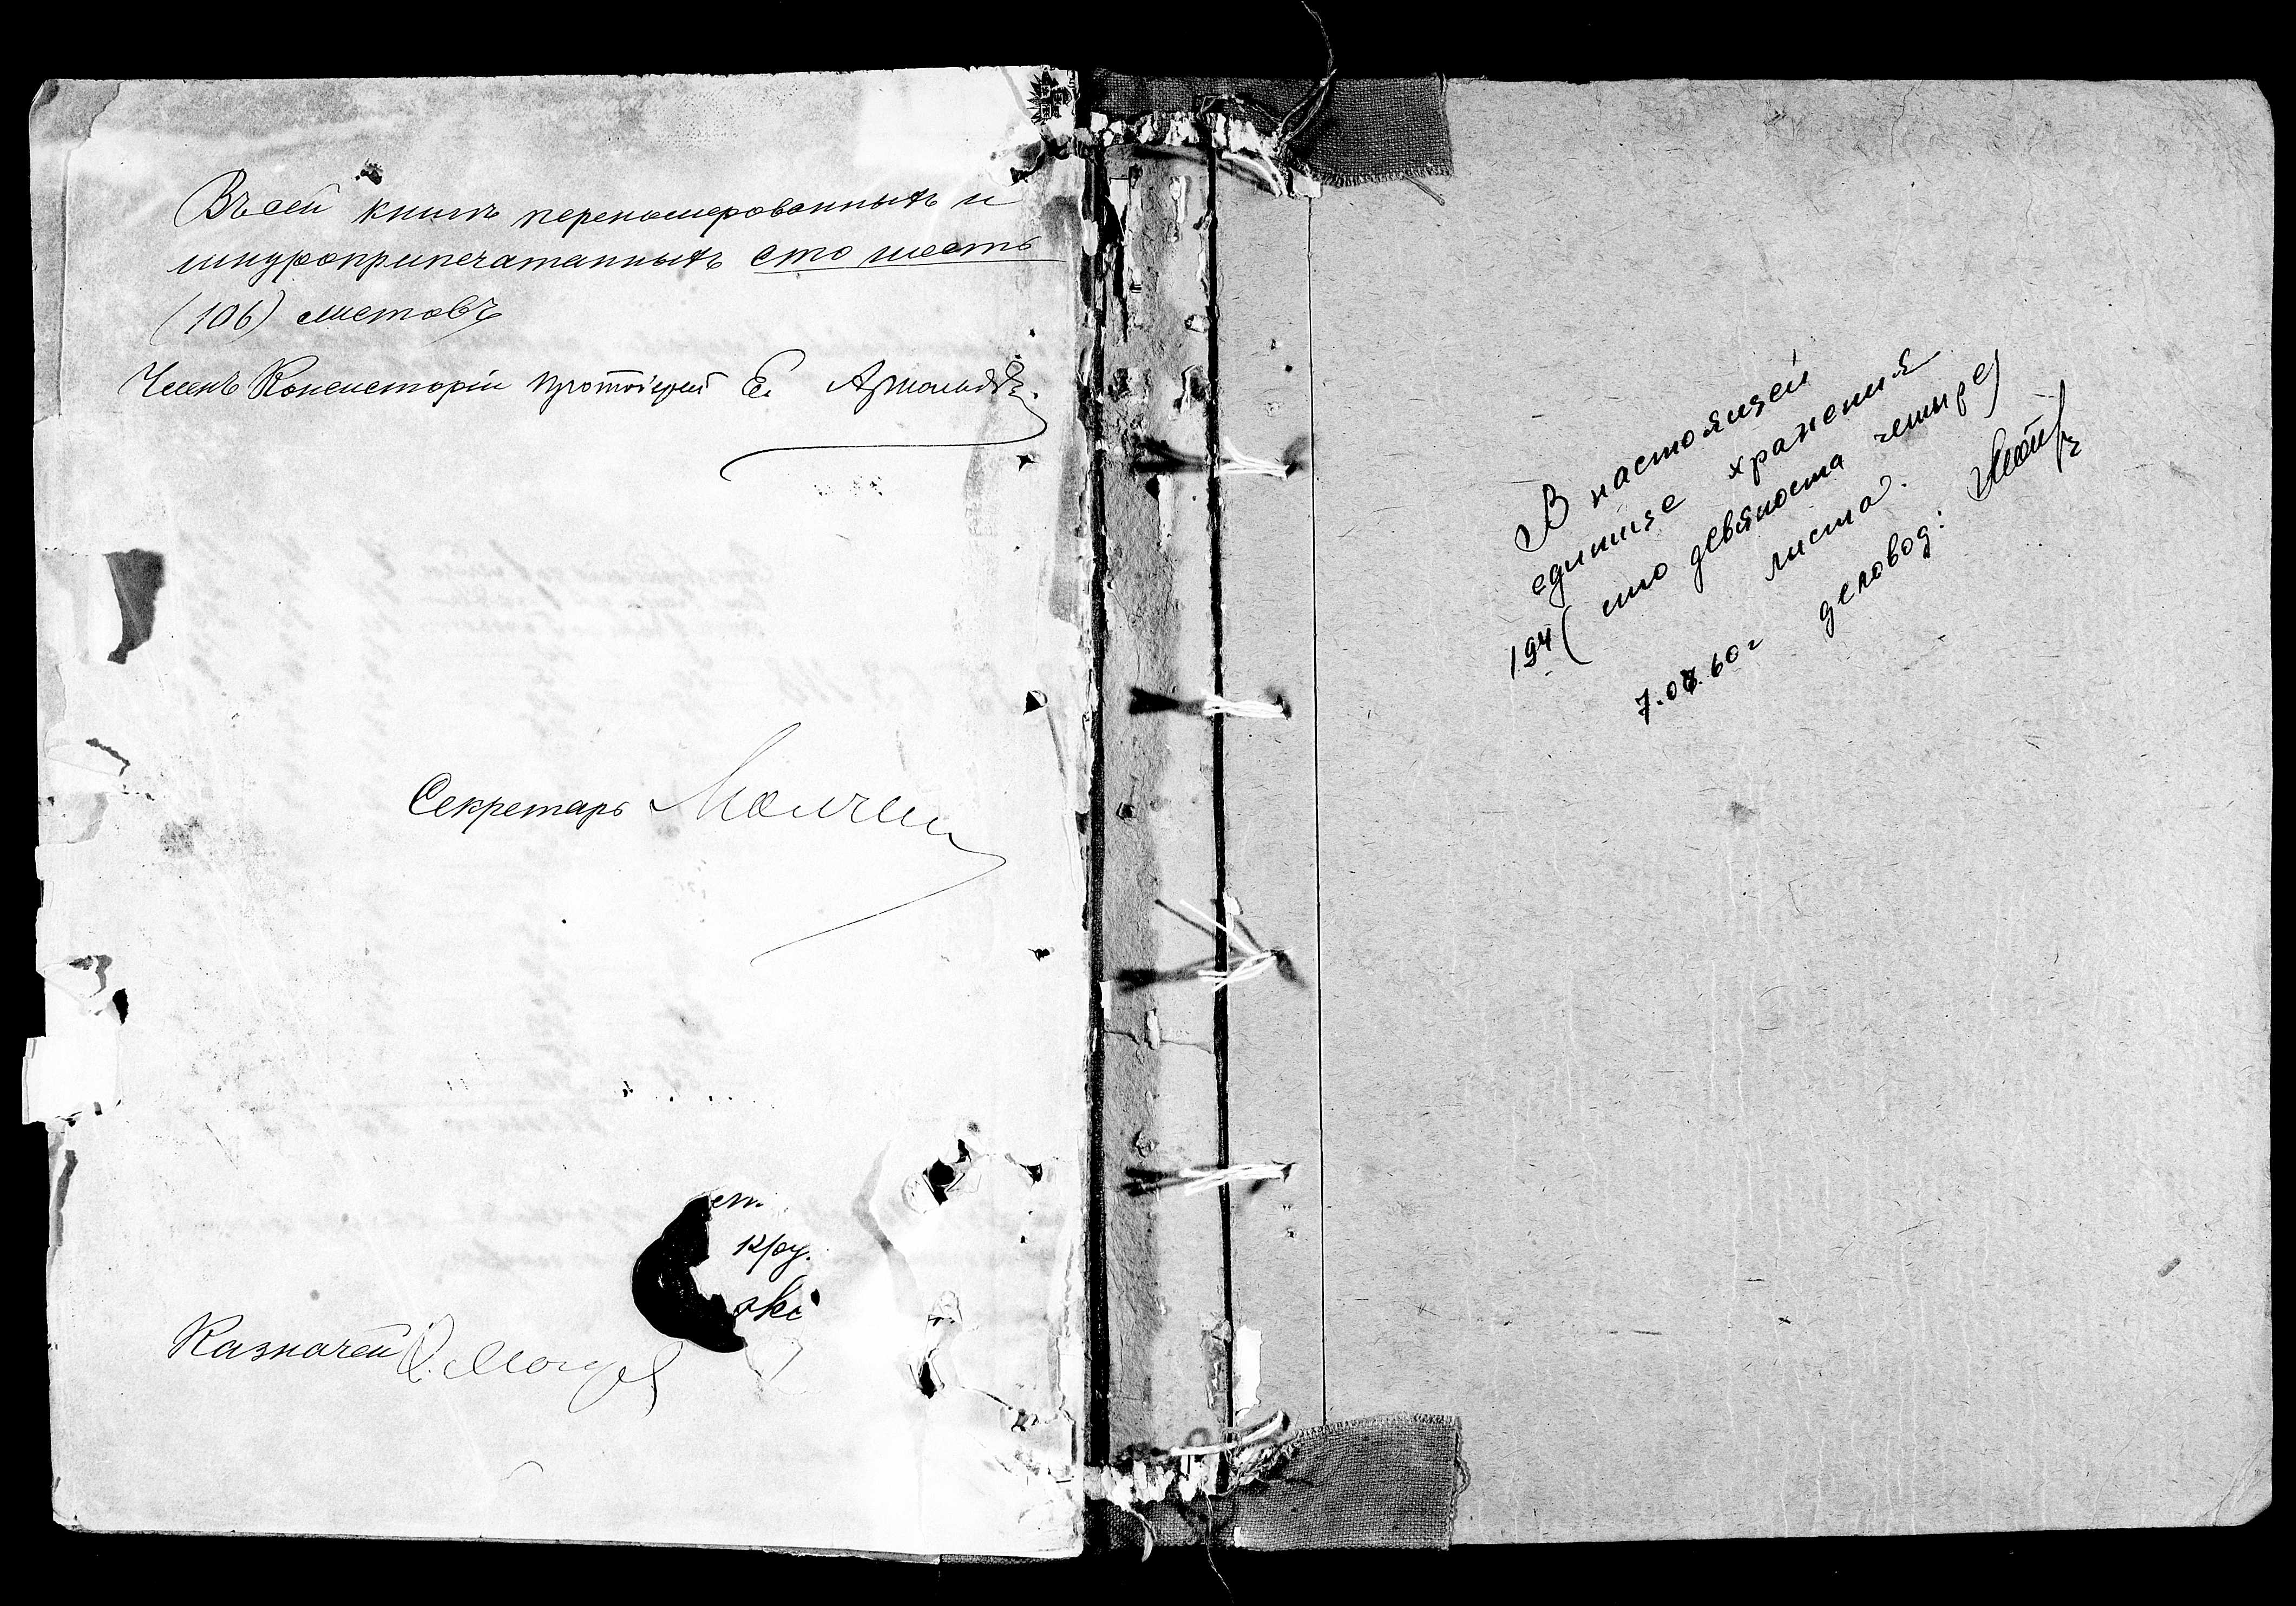 Въ сей книгѣ перенумерованныхъ и
шнуроприпечатанныхъ сто шесть
(106) листовъ
Членъ Консисторіи Протоіерей Е. Арнольдъ
Секретарь
кру.
Казначей
В настоящей
единице хранения
194 ( сто девяноста четыре)
листа.
7.07.60г деловод: